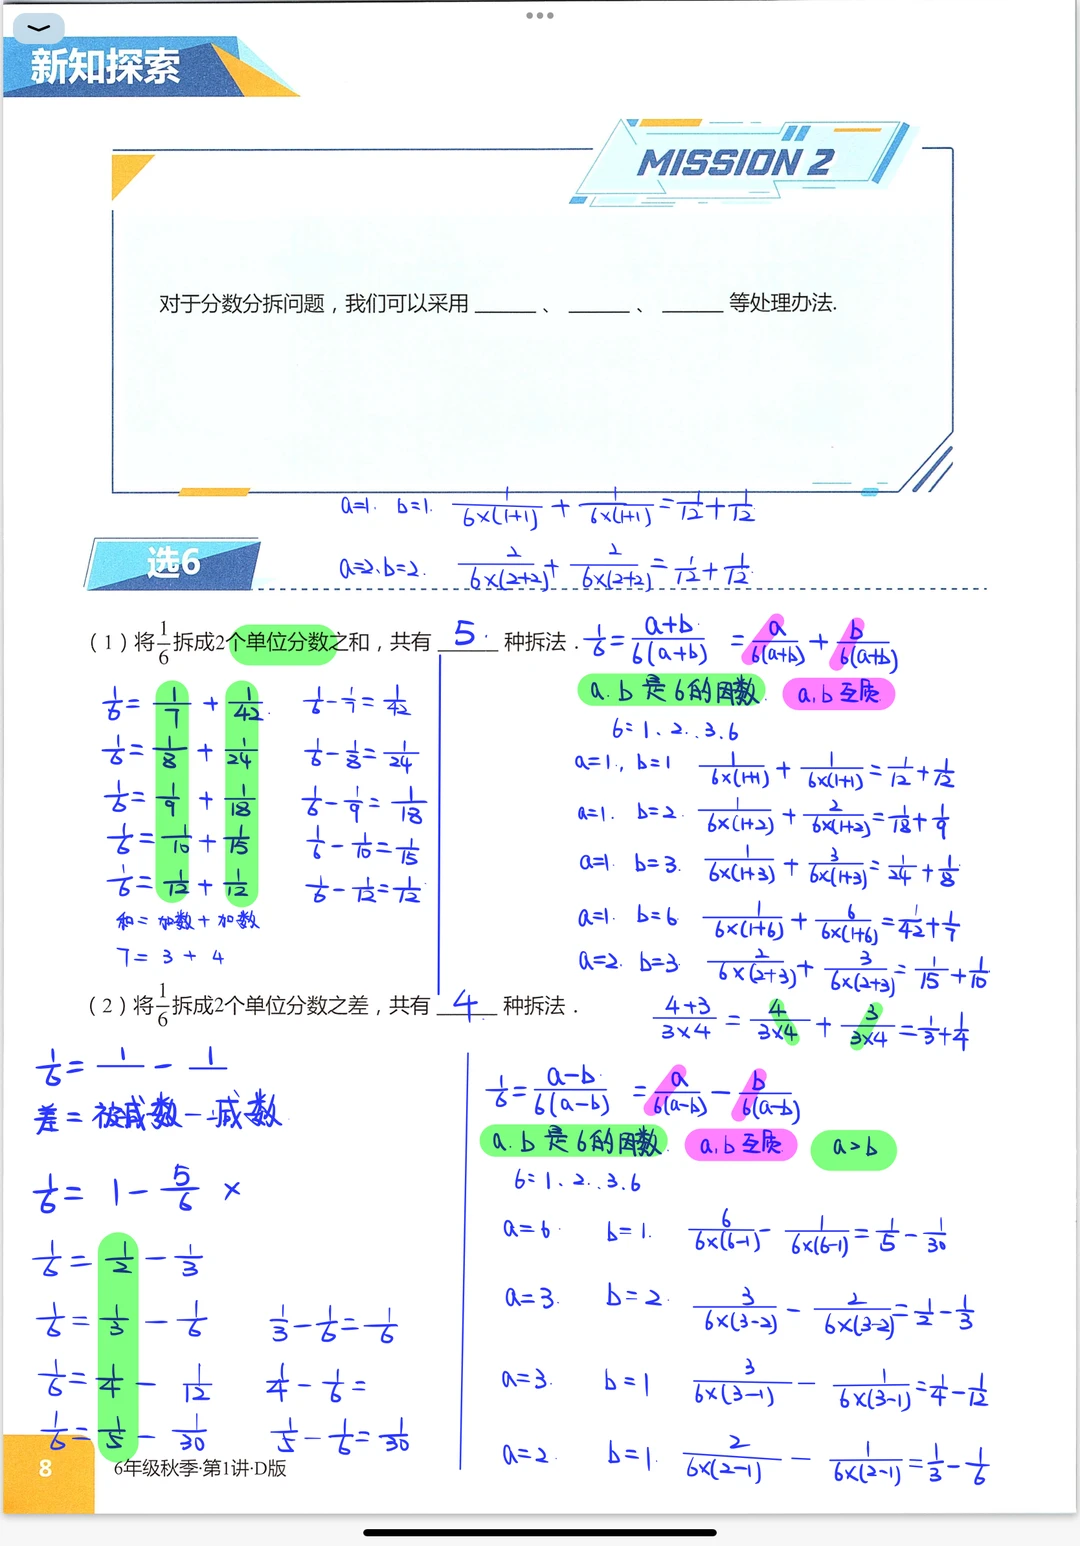 新知探索
MISSION 2
对于分数分拆问题，我们可以采用 ______ 、 ______ 、 ______ 等处理办法.
a=1. b=1. 1/6×(1+1) + 1/6×(1+1) = 1/12 + 1/12
选6
a=2、b=2. 2/6×(2+2) + 2/6×(2+2) = 1/12 + 1/12
（1）将1/6拆成2个单位分数之和，共有 5 种拆法．
1/6 = a+b/6(a+b) = a/6(a+b) + b/6(a+b)
a.b 是 6的因数 a,b 互质
6=1、2..3.6
1/6 = 1/7 + 1/42 1/6 - 1/7 = 1/42
1/6 = 1/8 + 1/24 1/6 - 1/8 = 1/24
1/6 = 1/9 + 1/18 1/6 - 1/9 = 1/18
1/6 = 1/10 + 1/15 1/6 - 1/10 = 1/15
1/6 = 1/12 + 1/12 1/6 - 1/12 = 1/12
和 = 加数 + 加数
7 = 3 + 4
a=1., b=1 1/6×(1+1) + 1/6×(1+1) = 1/12 + 1/12
a=1. b=2. 1/6×(1+2) + 2/6×(1+2) = 1/18 + 1/9
a=1. b=3. 1/6×(1+3) + 3/6×(1+3) = 1/24 + 1/8
a=1. b=6 1/6×(1+6) + 6/6×(1+6) = 1/42 + 1/7
a=2. b=3. 2/6×(2+3) + 3/6×(2+3) = 1/15 + 1/10
4+3/3×4 = 4/3×4 + 3/3×4 = 1/3 + 1/4
（2）将1/6拆成2个单位分数之差，共有 4 种拆法．
1/6 = 1/ - 1/
差 = 被减数 - 减数
1/6 = 1 - 5/6 ×
1/6 = 1/2 - 1/3
1/6 = 1/3 - 1/6 1/3 - 1/6 = 1/6
1/6 = 1/4 - 1/12 1/4 - 1/6 =
1/6 = 1/5 - 1/30 1/5 - 1/6 = 1/30
1/6 = a-b/6(a-b) = a/6(a-b) - b/6(a-b)
a.b 是 6的因数 a,b 互质 a>b
6=1、2..3.6
a=6 b=1. 6/6×(6-1) - 1/6×(6-1) = 1/5 - 1/30
a=3. b=2 3/6×(3-2) - 2/6×(3-2) = 1/2 - 1/3
a=3. b=1 3/6×(3-1) - 1/6×(3-1) = 1/4 - 1/12
a=2. b=1. 2/6×(2-1) - 1/6×(2-1) = 1/3 - 1/6
8 6年级秋季·第1讲·D版